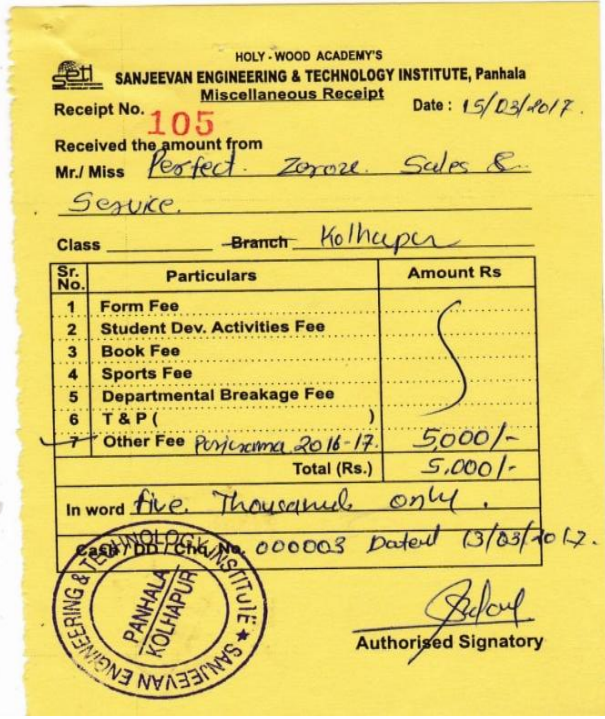 HOLY-WOOD ACADEMY'S
seti SANJEEVAN ENGINEERING & TECHNOLOGY INSTITUTE, Panhala
Miscellaneous Receipt
Receipt No. 105 Date : 15/03/2017.
Received the amount from
Mr./ Miss Perfect Sales &
Service.
Class Branch Kolhapur
Sr. No. Particulars Amount Rs
1 Form Fee
2 Student Dev. Activities Fee
3 Book Fee
4 Sports Fee
5 Departmental Breakage Fee
6 T & P ( )
7 Other Fee 2016-17. 5,000/-
Total (Rs.) 5,000/-
In word five Thousand only.
Cash / DD / Chq. No. 000003 Dated 13/03/2017.
SANJEEVAN ENGINEERING & TECHNOLOGY INSTITUTE ★
PANHALA
KOLHAPUR
Authorised Signatory